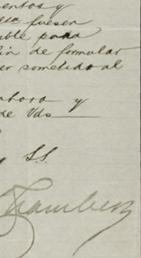 entos y
fuesen
ble para
in de formular
er sometido al
abora y
de Vds
y S.S.
Chamberz